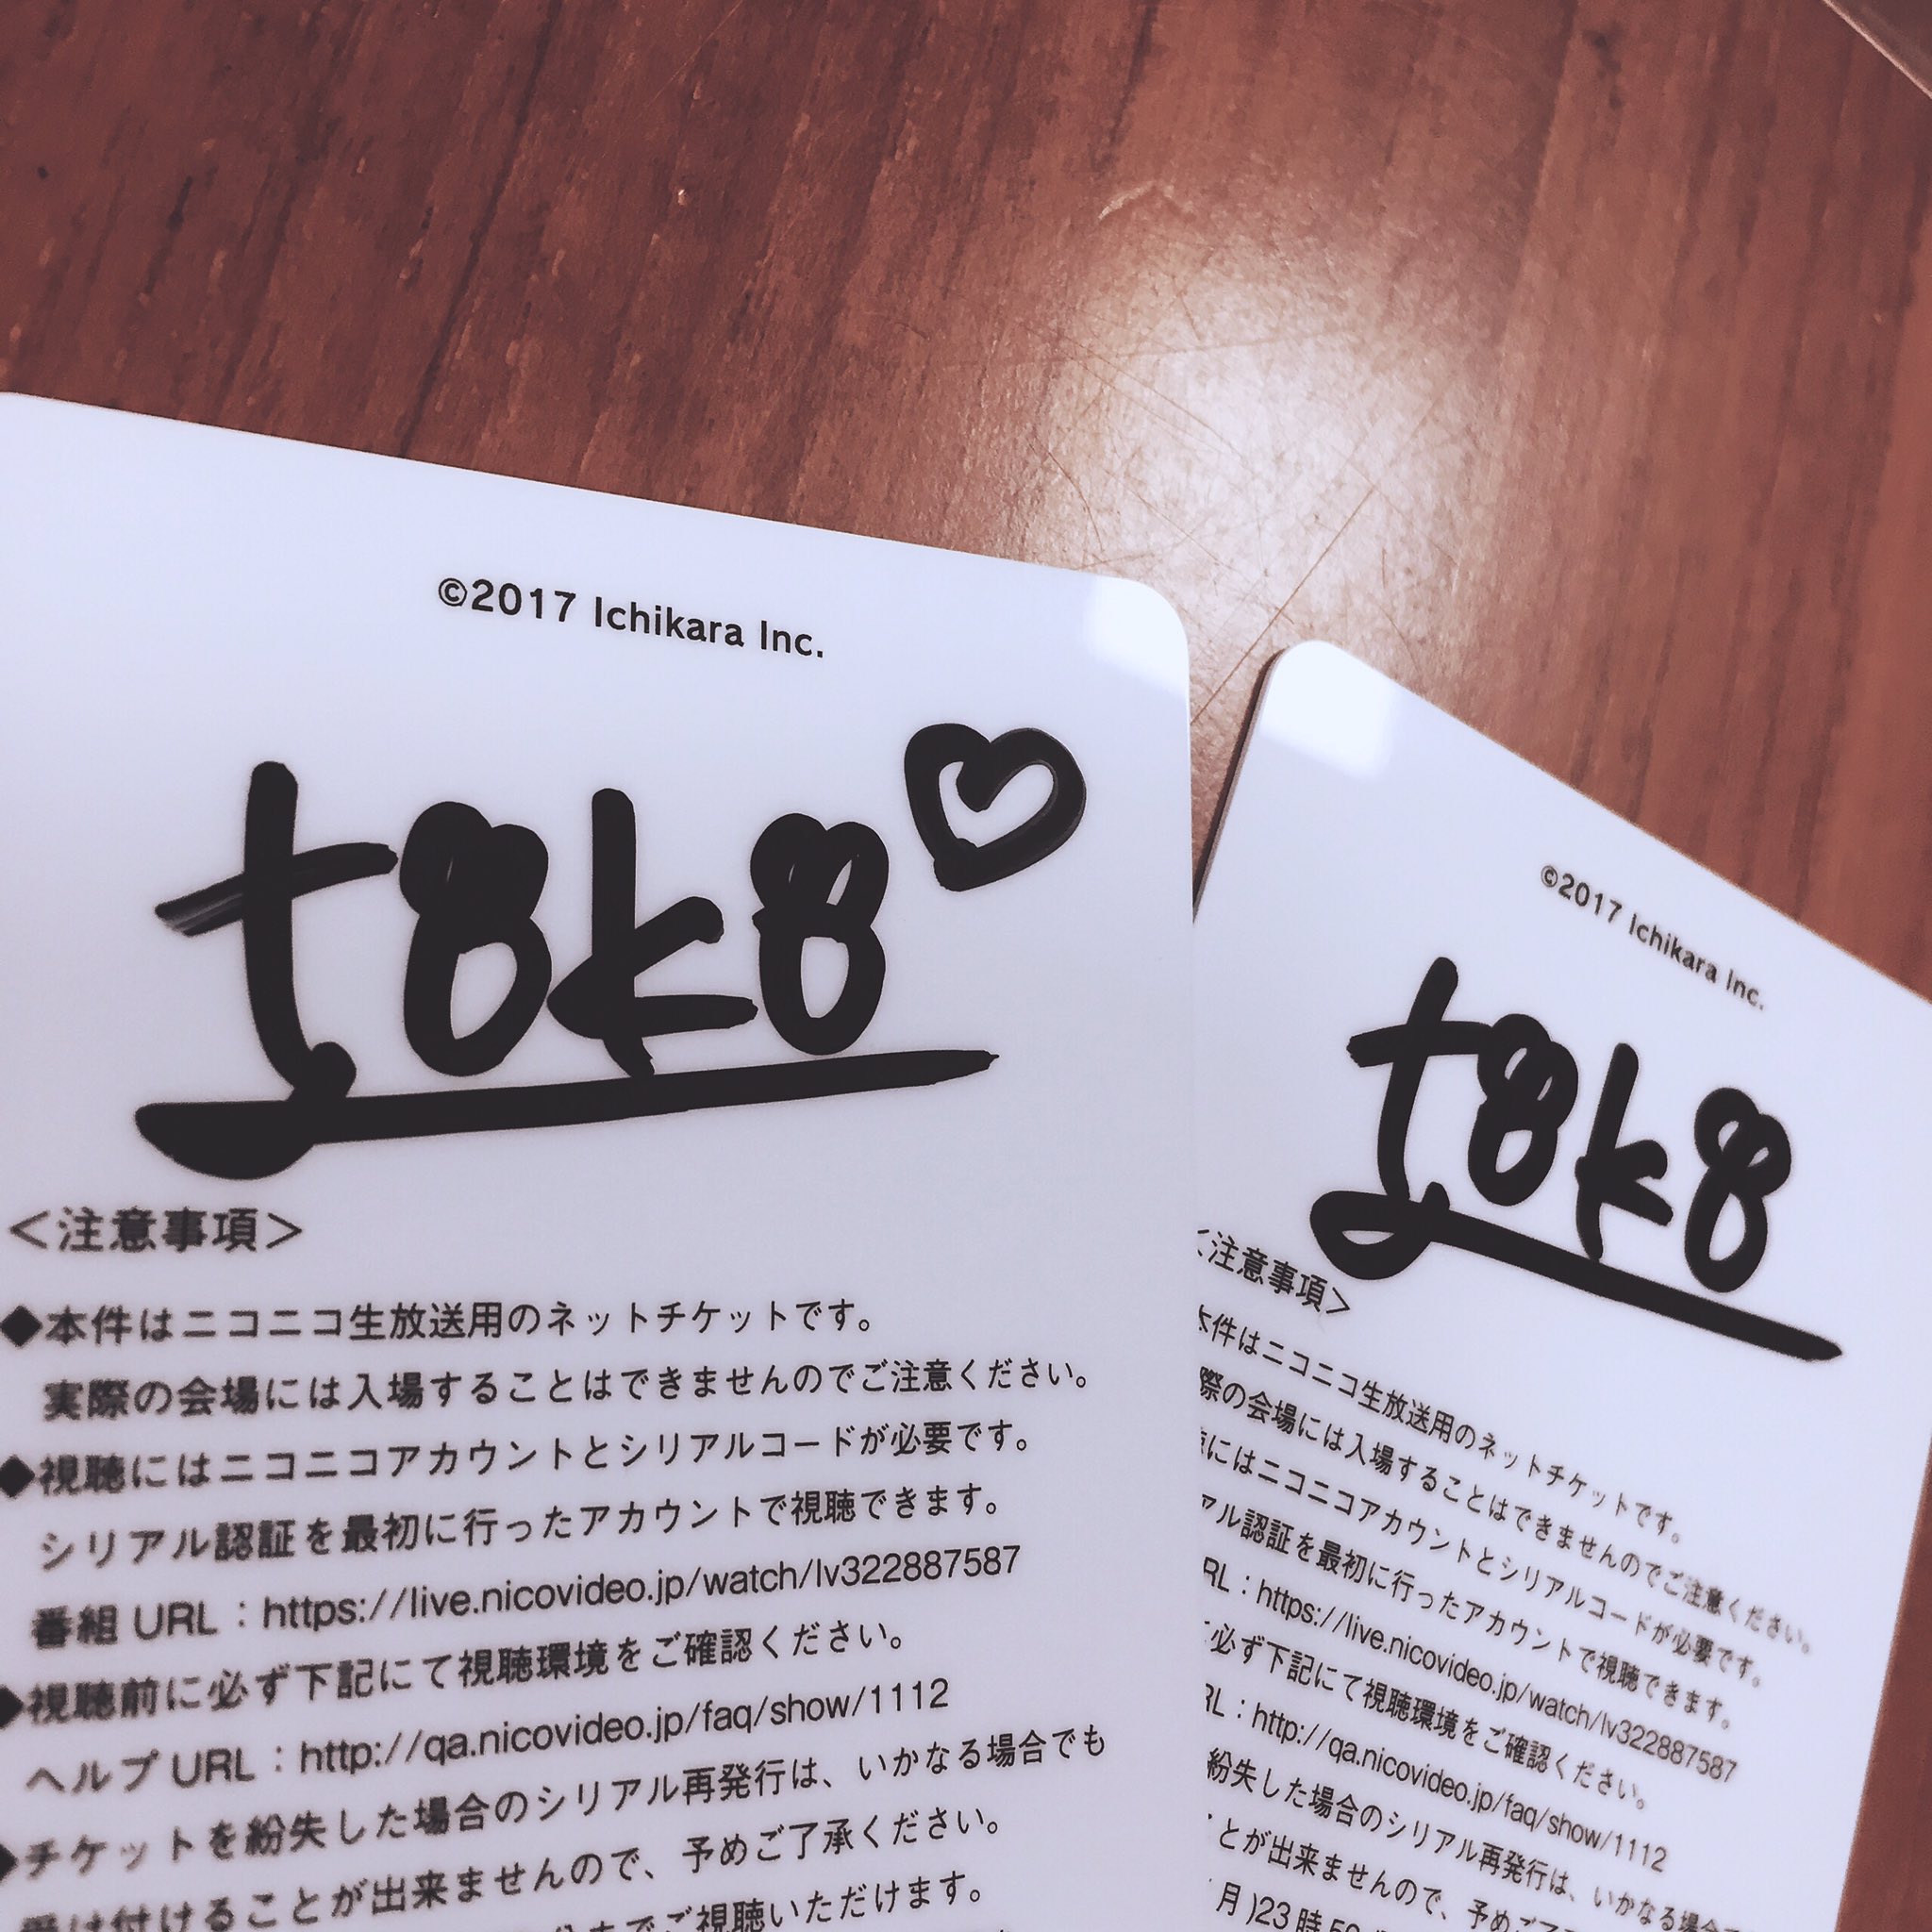 ©2017 Ichikara Inc.
toko
＜注意事項＞
◆本件はニコニコ生放送用のネットチケットです。
実際の会場には入場することはできませんのでご注意ください。
◆視聴にはニコニコアカウントとシリアルコードが必要です。
シリアル認証を最初に行ったアカウントで視聴できます。
番組 URL：https://live.nicovideo.jp/watch/lv322887587
◆視聴前に必ず下記にて視聴環境をご確認ください。
ヘルプ URL：http://qa.nicovideo.jp/faq/show/1112
◆チケットを紛失した場合のシリアル再発行は、いかなる場合でも
受け付けることが出来ませんので、予めご了承ください。
までご視聴いただけます。
©2017 Ichikara Inc.
toko
注意事項＞
件はニコニコ生放送用のネットチケットです。
際の会場には入場することはできませんのでご注意ください。
にはニコニコアカウントとシリアルコードが必要です。
アル認証を最初に行ったアカウントで視聴できます。
RL：https://live.nicovideo.jp/watch/lv322887587
必ず下記にて視聴環境をご確認ください。
RL：http://qa.nicovideo.jp/faq/show/1112
紛失した場合のシリアル再発行は、いかなる場合
とが出来ませんので、予めご
月)23時